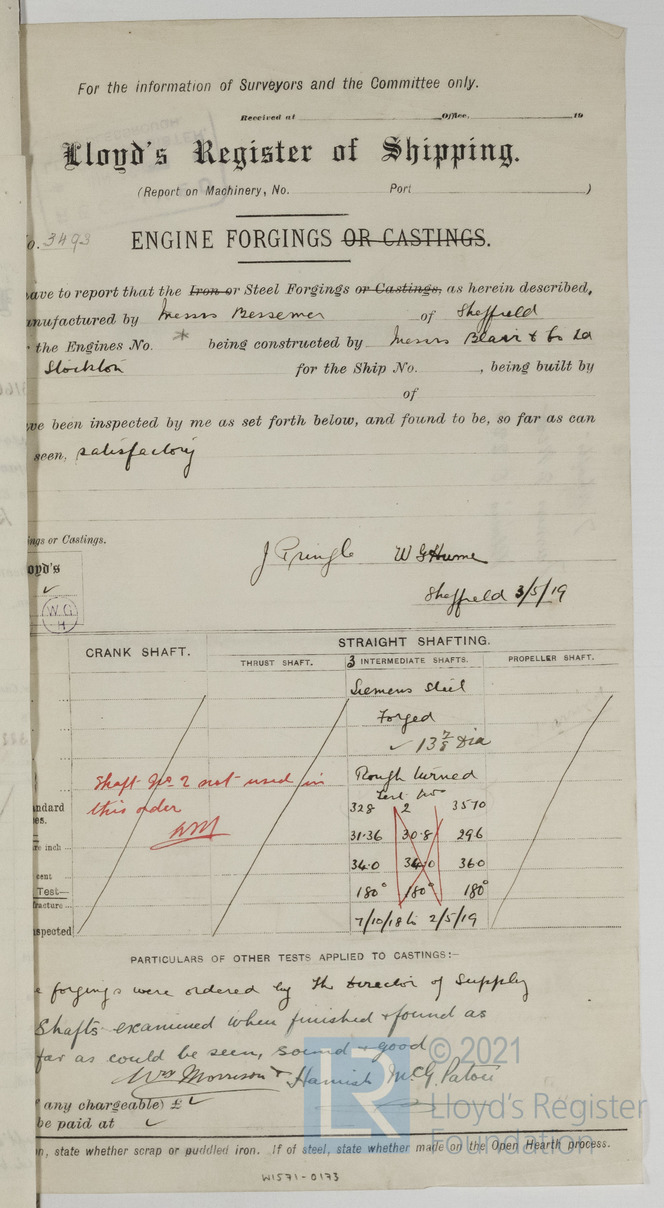 For the information of Surveyors and the Committee only.
Received at Office, 19
Lloyd's Register of Shipping.
(Report on Machinery, No. Port )
o. 3493
ENGINE FORGINGS OR CASTINGS.
ave to report that the Iron or Steel Forgings or Castings, as herein described,
anufactured by Messrs Bessemer of Sheffield
the Engines No. * being constructed by Messrs Blair & Co Ld
Stockton for the Ship No. , being built by
of
ve been inspected by me as set forth below, and found to be, so far as can
seen, satisfactory
ings or Castings.
J Pringle W G Hume
oyd's
✓
W G
H
Sheffield 3/5/19
CRANK SHAFT. STRAIGHT SHAFTING.
THRUST SHAFT. 3 INTERMEDIATE SHAFTS. PROPELLER SHAFT.
Siemens Steel
Forged
✓ 13 7/8 Dia
Rough turned
Shaft No 2 not used in
this order
Test No
ndard
es.
328 2 3570
31.36 30.8 29.6
re inch
34.0 34.0 36.0
cent
Test—
180° 180° 180°
fracture
spected 7/10/18 to 2/5/19
PARTICULARS OF OTHER TESTS APPLIED TO CASTINGS:—
e forgings were ordered by The Director of Supply
Shafts examined when finished & found as
far as could be seen, sound & good
Wm Morrison & Hamish McG. Paton
any chargeable) £ ✓
be paid at ✓
n, state whether scrap or puddled iron. If of steel, state whether made on the Open Hearth process.
W1571-0173
© 2021
Lloyd's Register
Foundation
LR